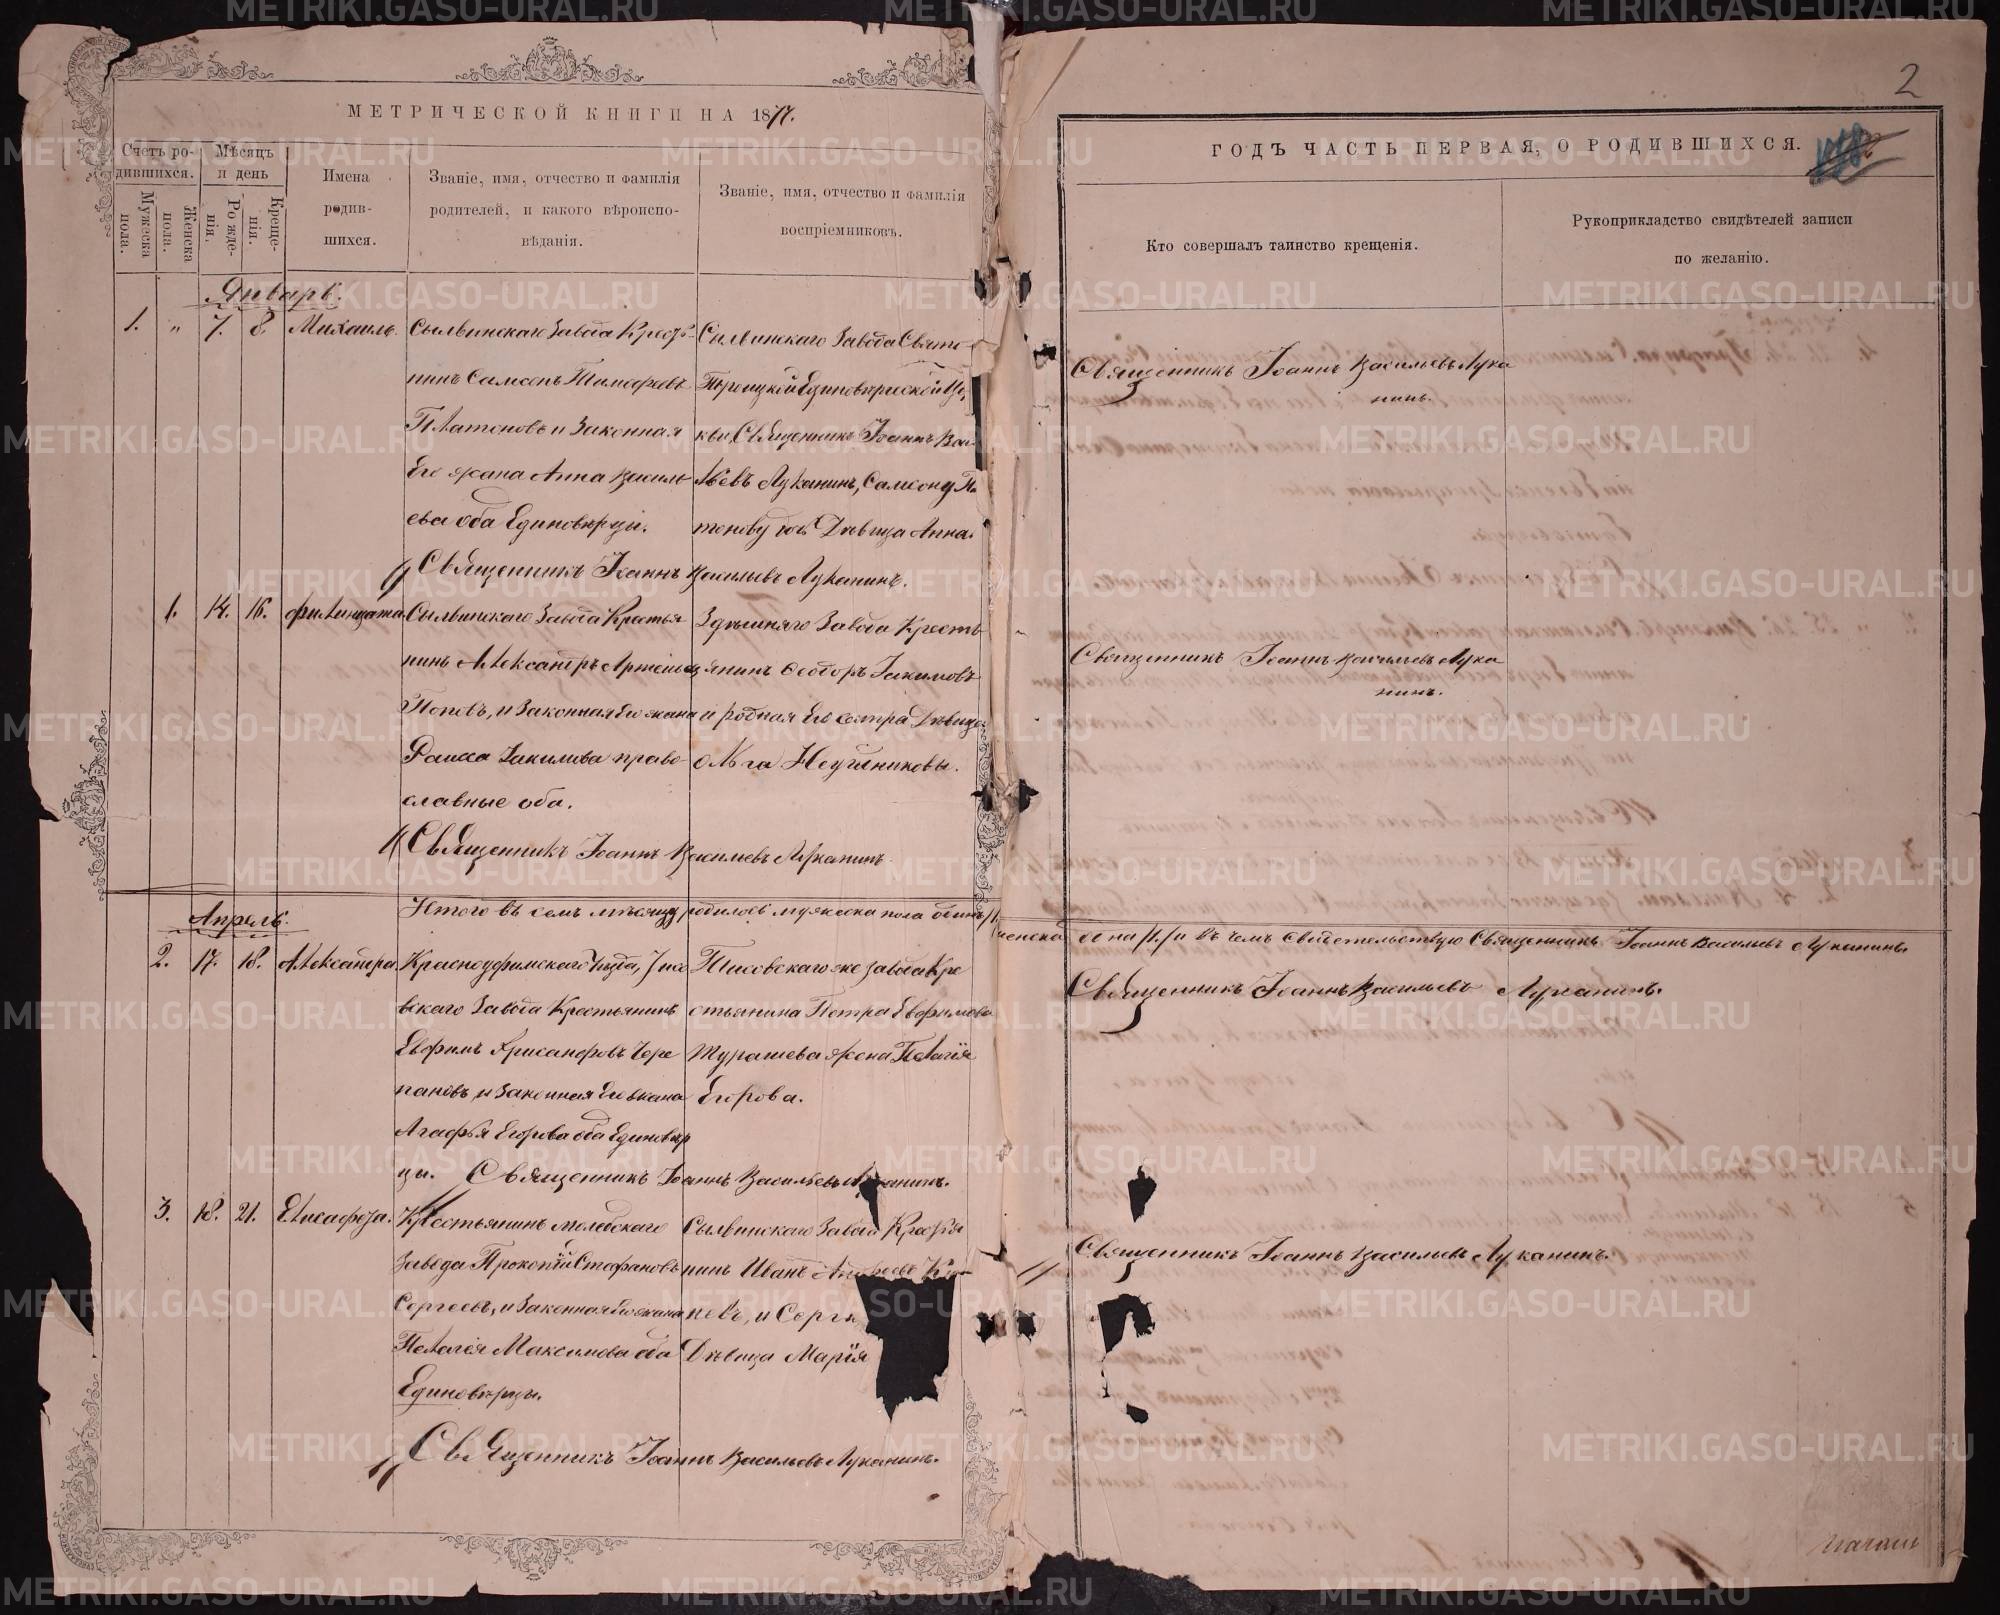 МЕТРИЧЕСКОЙ КНИГИ НА 1877.
Счетъ ро-
дившихся.
Мужеска
пола.
Женска
пола.
Мѣсяцъ
и день
Рожде-
нія.
Креще-
нія.
Имена
родив-
шихся.
Званіе, имя, отчество и фамилія
родителей, и какого вѣроиспо-
вѣданія.
Званіе, имя, отчество и фамилія
воспріемниковъ.
Январь.
1. " 7. 8 Михаилъ.
Сылвинскаго Завода Кресть-
нинъ Самсонъ Тимофеевъ
Платоновъ и Законная
Его жена Анна Василь
ева оба Единоверцы.
Сылвинскаго Завода Свято-
Троицкой Единоверческой Це,
кви, Священникъ Іоаннъ Васи-
льевъ Луканинъ, Самсону Пла
тонову Девица Анна.
Священникъ Іоаннъ Васильевъ Луканинъ.
1. 14. 16. Филицата
Сылвинскаго Завода Крестья
нинъ Александръ Артемьев
Поповъ, и Законная Его жена
Раисса Іакимова право-
славные оба.
Здешняго Завода Кресть
янинъ Феодоръ Іакимовъ
и родная Его сестра Девица
Ольга
Священникъ Іоаннъ Васильевъ Луканинъ.
Итого въ семъ месяце родилось мужеска пола одинъ /1.
Апрель.
2. 17. 18. Александра
Красноуфимскаго Уезда, Тисо
вскаго Завода Крестьянинъ
Евфимъ Хрисанфовъ Чере
пановъ, и Законная Его жена
Агафья Егорова оба Единовер
цы. Священникъ Іоаннъ Васильевъ Луканинъ.
Тисовскаго же завода Кре
стьянина Петра Евфимова
Турашева жена Пелагія
Егорова.
3. 18. 21. Елисафета.
Крестьянинъ Молебскаго
Завода Прокопій Стефановъ
Сергеевъ, и Законная Его жена
Пелагія Максимова оба
Единоверцы.
Сылвинскаго Завода Крестья
нинъ Иванъ
невъ, и Серги
Девица Марія
Священникъ Іоаннъ Васильевъ Луканинъ.
2
ГОДЪ ЧАСТЬ ПЕРВАЯ, О РОДИВШИХСЯ.
Кто совершалъ таинство крещенія.
Рукоприкладство свидѣтелей записи
по желанію.
Священникъ Іоаннъ Васильевъ Лука
нинъ.
Священникъ Іоаннъ Васильевъ Лука
нинъ.
женска одна /1./ и въ чемъ свидетельствую Священникъ Іоаннъ Васильевъ Луканинъ.
Священникъ Іоаннъ Васильевъ Луканинъ.
Священникъ Іоаннъ Васильевъ Луканинъ.
METRIKI.GASO-URAL.RU